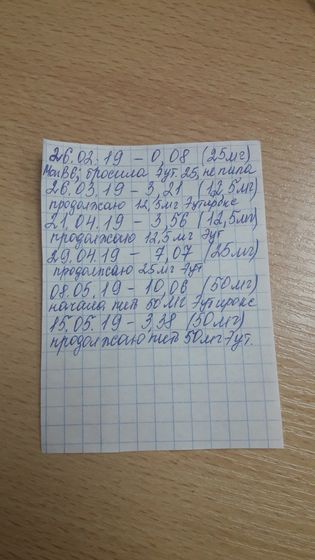 26.02.19 - 0,08 (25мг)
бросила Эут. 25, не пила
26.03.19 - 3,21 (12,5мг)
продолжаю 12,5мг Эутирокс
21.04.19 - 3,56 (12,5мг)
продолжаю 12,5мг Эут
29.04.19 - 7,07 (25мг)
продолжаю 25мг Эут
08.05.19 - 10,06 (50мг)
начала пить 50мг Эутирокс
15.05.19 - 3,38 (50мг)
продолжаю пить 50мг Эут.